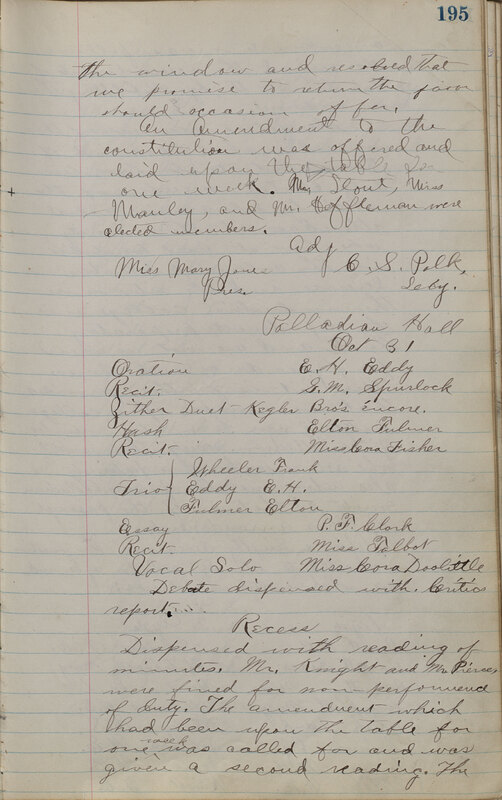 195
the window and resolved that
we promise to return the favor
should occasion offer.
An Amendment to the
constitution was offered and
laid upon the table for
one week. Stout, Miss
Manley, and Mr. Heffleman were
elected members.
Adj
Miss Mary Jones C. S. Polk,
Pres Secy.
Palladian Hall
Oct 31
Oration E. H. Eddy
Recit. G. M. Spurlock
Zither Duet - Kegler Bro's encore.
Hash Elton Fulmer
Recit. Miss Cora Fisher
Wheeler Frank
Trio Eddy E. H.
Fulmer Elton
Essay P. F. Clark
Recit. Miss Talbot
Vocal Solo Miss Cora Doolittle
Debate dispensed with. Critics
report....
Recess
Dispensed with reading of
minutes. Mr. Knight and Mr. Pierce
were fined for non performence
of duty. The amendment which
had been upon the table for
one week was called for and was
given a second reading. The